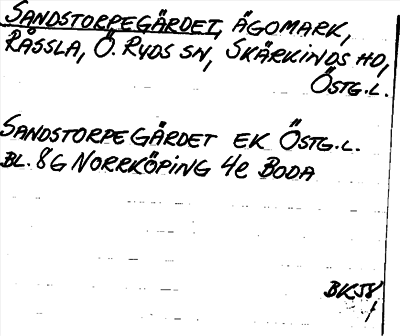 SANDSTORPEGÄRDET, ÄGOMARK,
RÅSSLA, Ö. RYDS SN, SKÄRKINDS HD,
ÖSTG.L.
SANDSTORPEGÄRDET EK ÖSTG.L.
BL. 8G NORRKÖPING 4e BODA
BKJ8